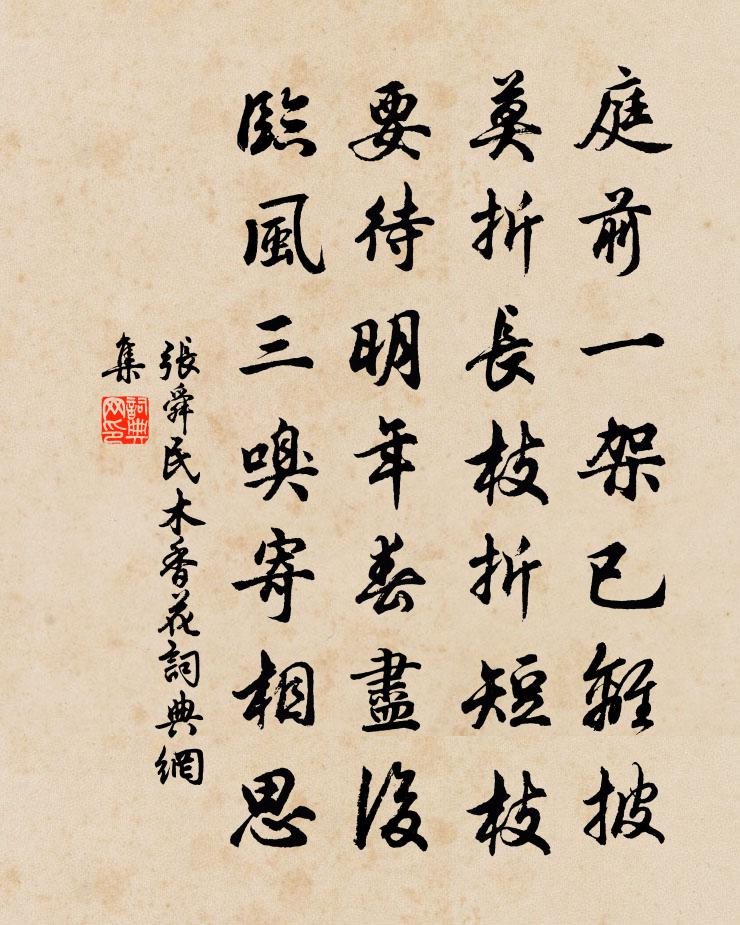 庭前一架已離披
莫折長枝折短枝
要待明年春盡後
臨風三嗅寄相思
張舜民木香花詞典網
集
詞典网印